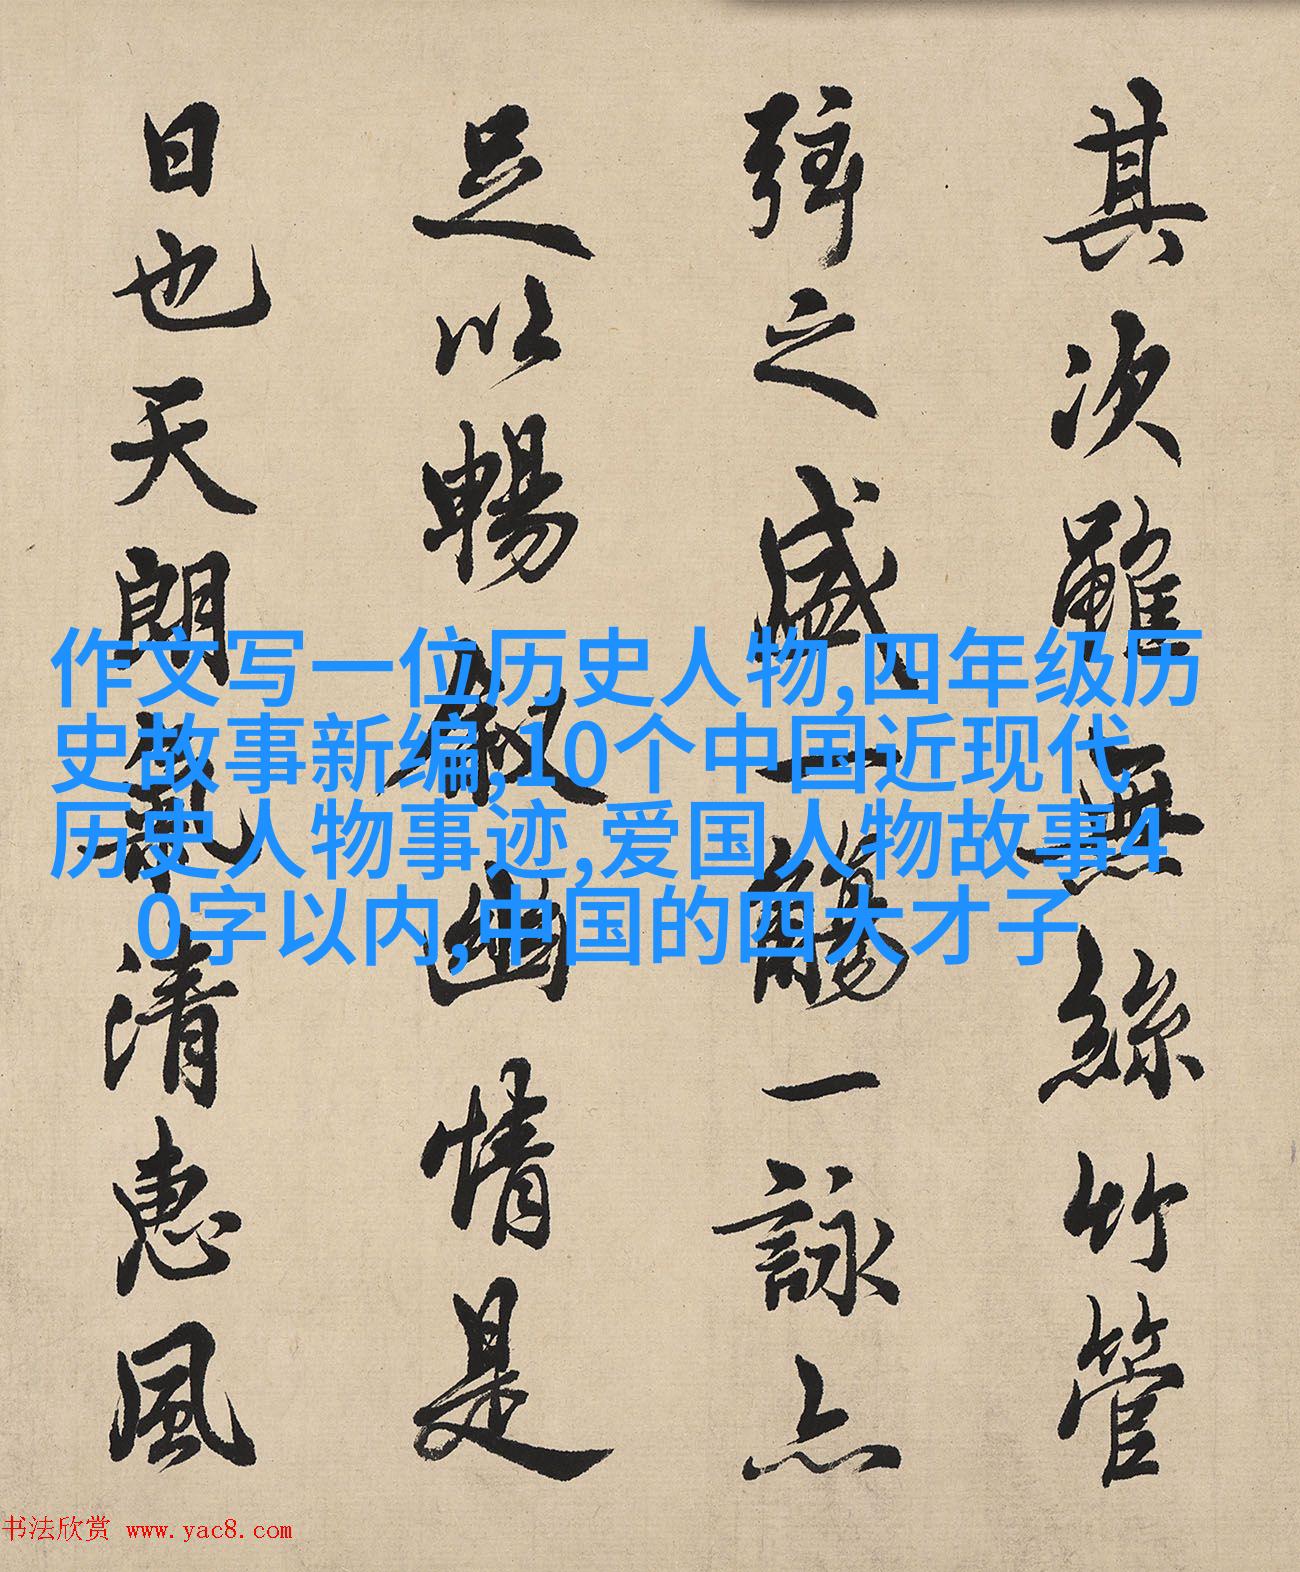 其次雖無絲竹管
弦之盛一觴一詠亦
足以暢叙幽情是
日也天朗氣清惠風
作文写一位历史人物,四年级历
史故事新编,10个中国近现代
历史人物事迹,爱国人物故事4
0字以内,中国的四大才子
书法欣赏 www.yac8.com